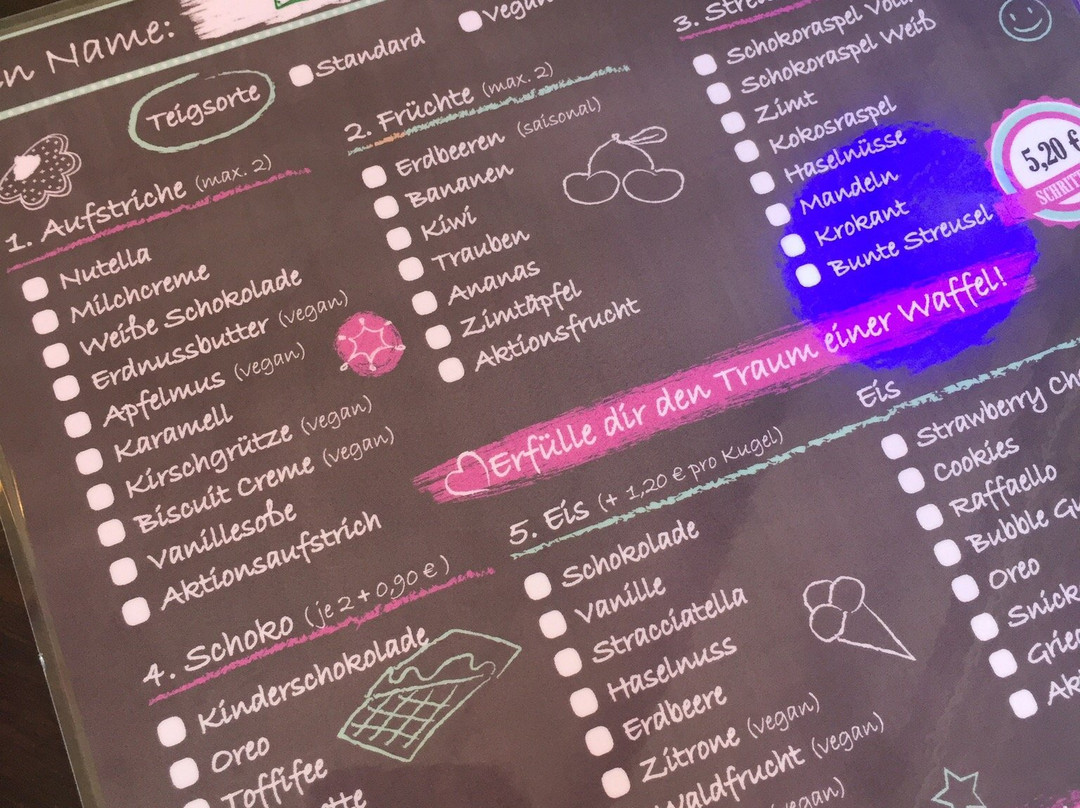 Name:
Teigsorte
Standard
Vegan
1. Aufstriche (max. 2)
Nutella
Milchcreme
Weiße Schokolade
Erdnussbutter (vegan)
Apfelmus (vegan)
Karamell
Kirschgrütze (vegan)
Biscuit Creme (vegan)
Vanillesoße
Aktionsaufstrich
2. Früchte (max. 2)
Erdbeeren (saisonal)
Bananen
Kiwi
Trauben
Ananas
Zimtäpfel
Aktionsfrucht
3.
Schokoraspel
Schokoraspel Weiß
Zimt
Kokosraspel
Haselnüsse
Mandeln
Krokant
Bunte Streusel
5,20 €
Erfülle dir den Traum einer Waffel!
4. Schoko (je 2 + 0,90 €)
Kinderschokolade
Oreo
Toffifee
5. Eis (+ 1,20 € pro Kugel)
Schokolade
Vanille
Stracciatella
Haselnuss
Erdbeere
Zitrone (vegan)
Waldfrucht (vegan)
Eis
Strawberry
Cookies
Raffaello
Bubble
Oreo